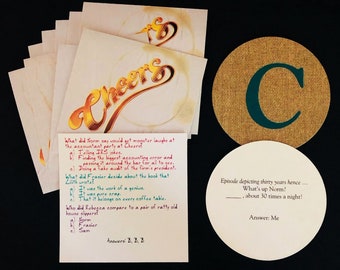 Cheers
Cheers
C
What did Norm say would get monster laughs at
the accountant party at Cheers?
a. Telling IRS jokes.
b. Finding the biggest accounting error and
passing it around the bar for all to see.
c. Doing a fake audit of the firm's president.
What did Frasier decide about the book that
Lilith wrote?
a. It was the work of a genius.
b. It was pure crap.
c. That it belongs on every coffee table.
Who did Rebecca compare to a pair of ratty old
house slippers?
a. Norm
b. Frasier
c. Sam
Answers: B, B, B
Episode depicting thirty years hence …
What's up Norm?
_____, about 30 times a night!
Answer: Me